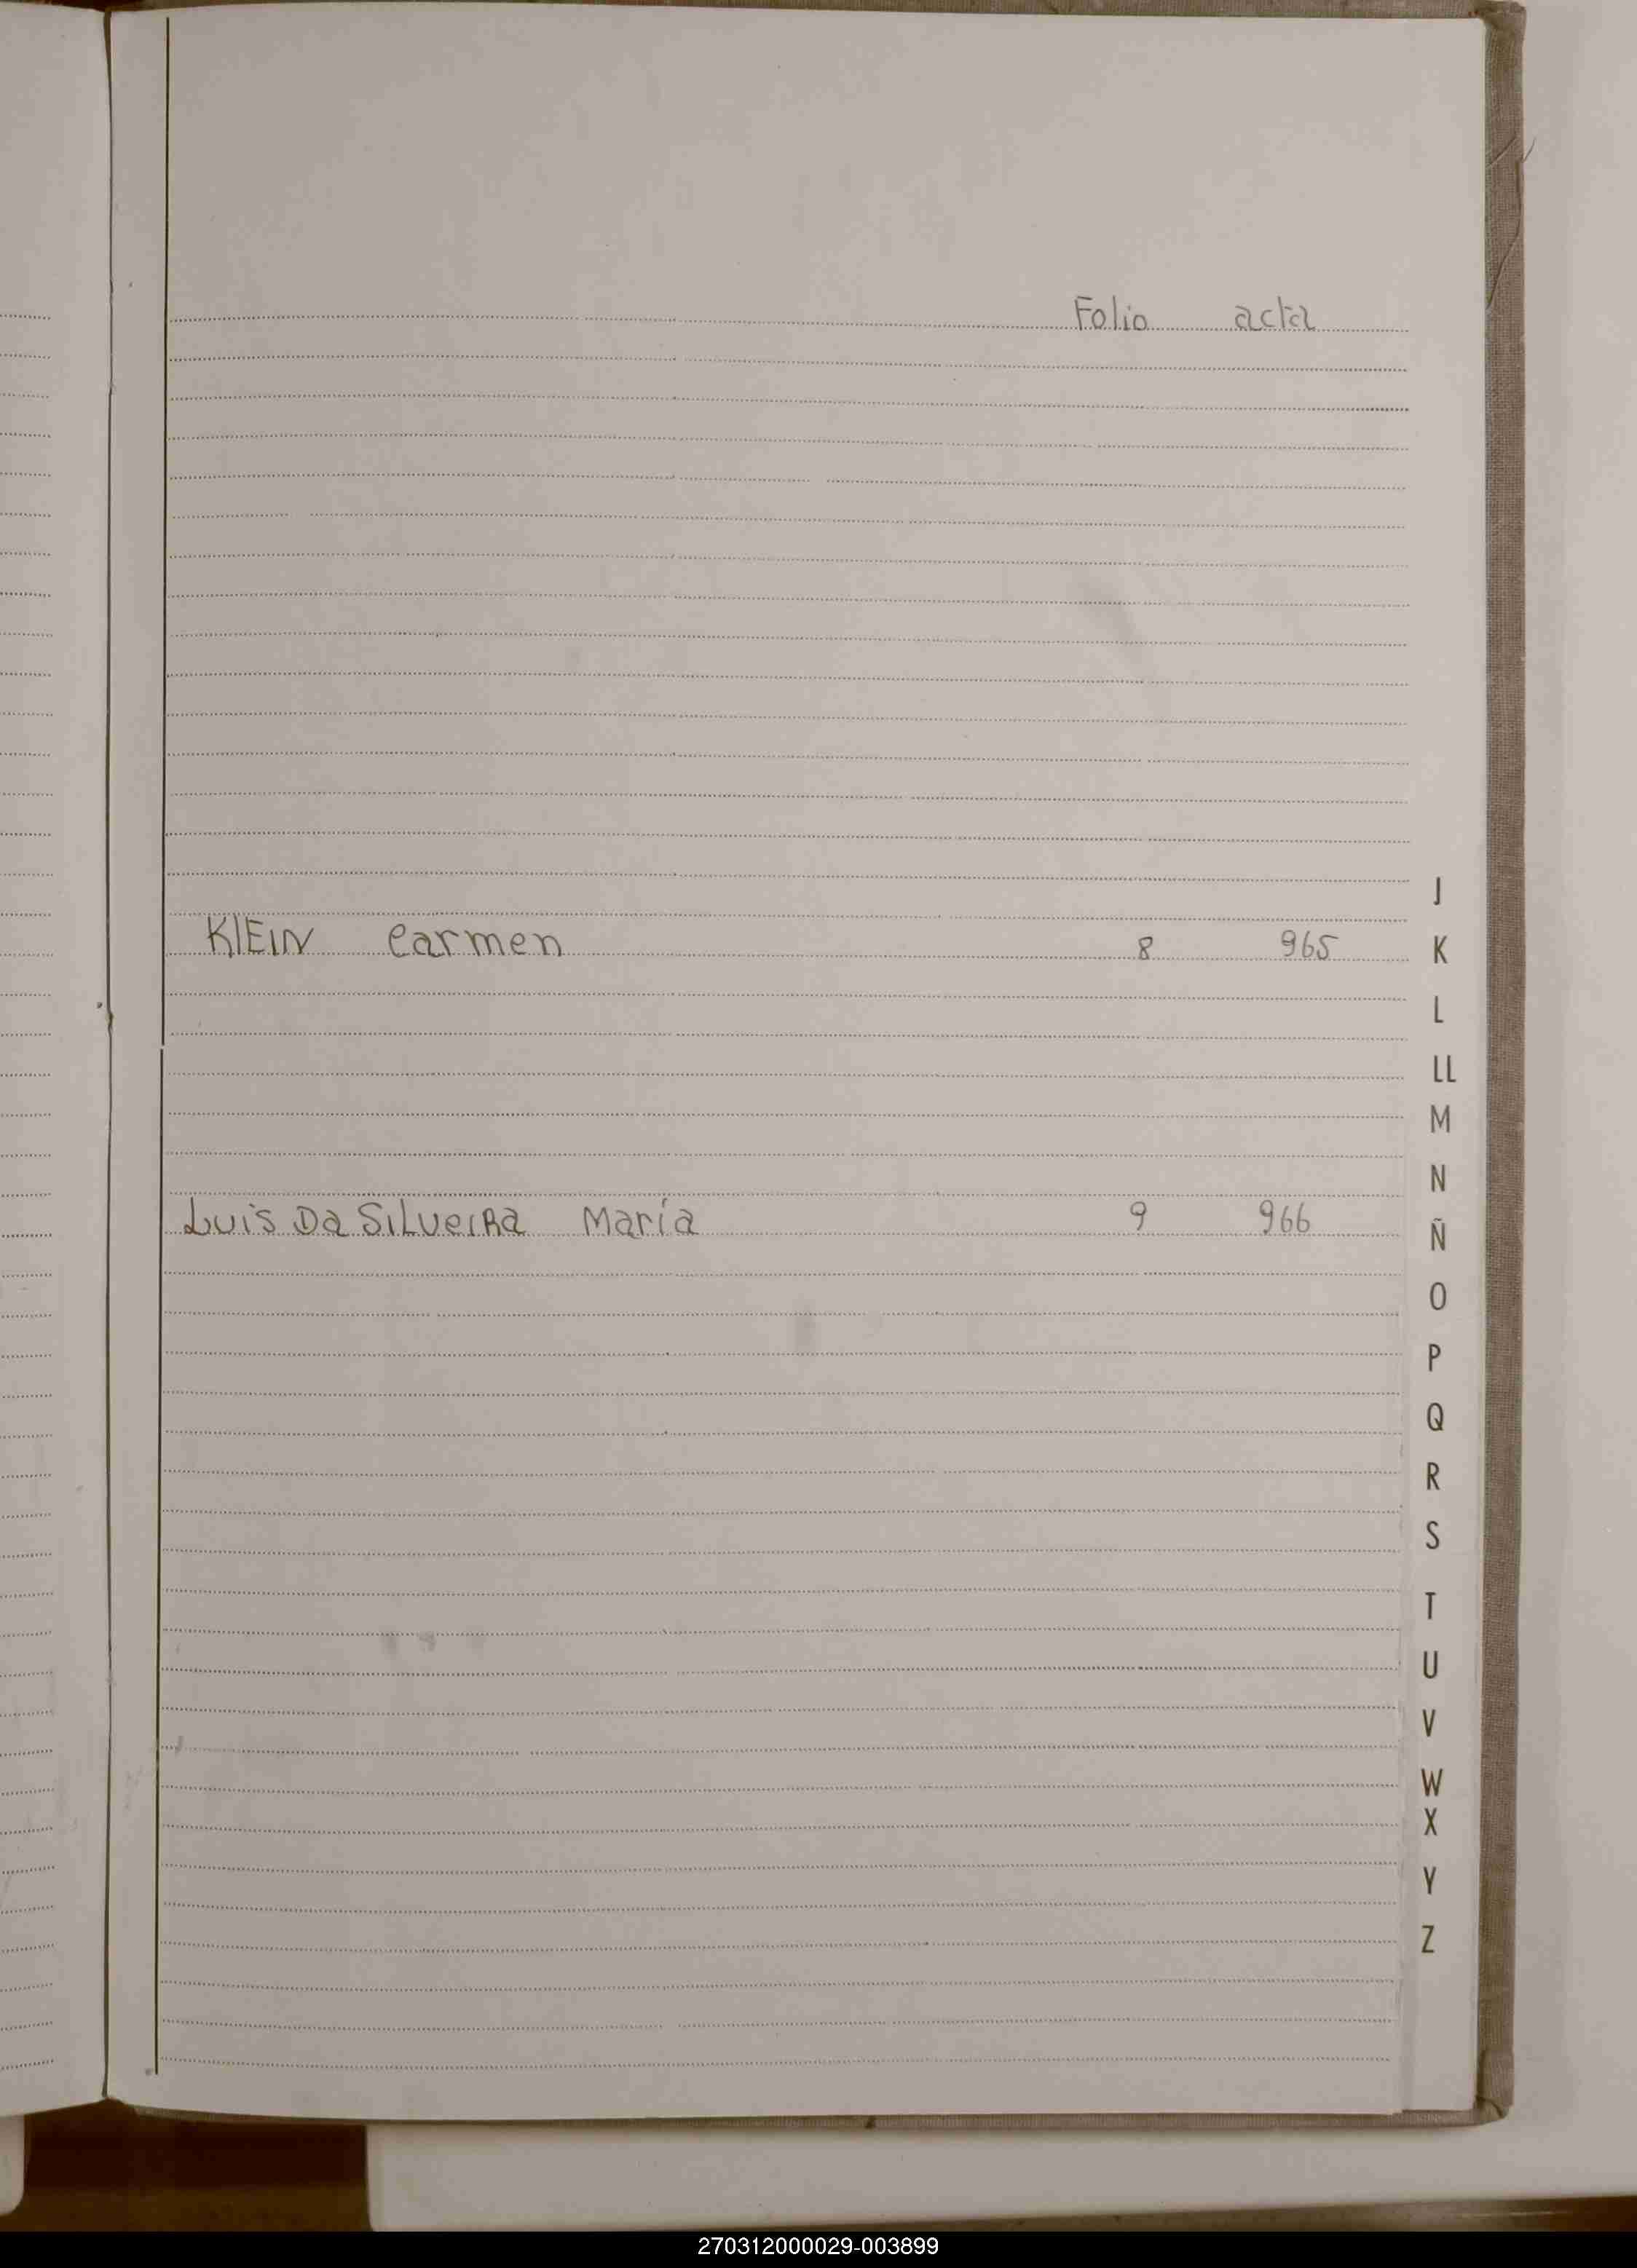 Folio acta
J
KlEIN Carmen 8 965 K
L
LL
M
N
Luis Da SiLveiRa María 9 966
Ñ
O
P
Q
R
S
T
U
V
W
X
Y
Z
270312000029-003899